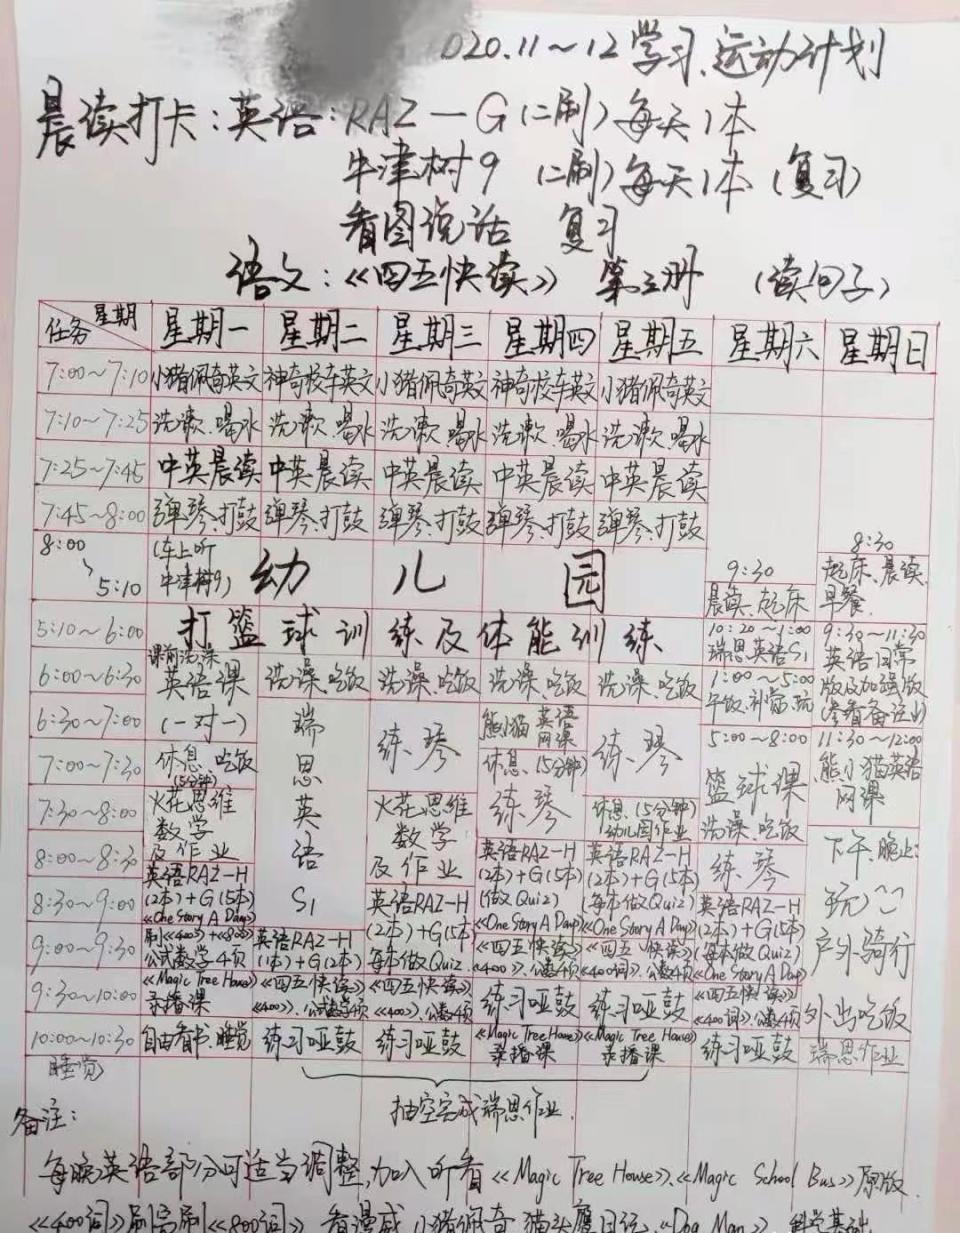 020.11~12学习、运动计划
晨读打卡:英语:RAZ—G(二刷)每天1本
牛津树9 (二刷)每天1本(复习)
看图说话 复习
语文:《四五快读》 第三册 (读句子)
任务 星期 星期一 星期二 星期三 星期四 星期五 星期六 星期日
7:00~7:10 小猪佩奇英文 神奇校车英文 小猪佩奇英文 神奇校车英文 小猪佩奇英文
7:10~7:25 洗漱、喝水 洗漱、喝水 洗漱、喝水 洗漱、喝水 洗漱、喝水
7:25~7:45 中英晨读 中英晨读 中英晨读 中英晨读 中英晨读
7:45~8:00 弹琴、打鼓 弹琴、打鼓 弹琴、打鼓 弹琴、打鼓 弹琴、打鼓
8:00
~
5:10
(车上听
牛津树9)
幼儿园
9:30
晨读、起床
8:30
起床、晨读、
早餐
5:10~6:00 打篮球训练及体能训练
10:20~1:00
瑞思英语S1
9:30~11:30
英语日常
版及加强版
(参看备注)
6:00~6:30
课前洗澡
英语课
(一对一)
洗澡、吃饭 洗澡、吃饭 洗澡、吃饭 洗澡、吃饭
1:00~5:00
午饭、补觉、玩
6:30~7:00
瑞思英语
S1
练琴
熊小猫英语
网课
练琴
5:00~8:00
篮球课
洗澡、吃饭
11:30~12:00
熊小猫英语
网课
7:00~7:30
休息、吃饭
(5分钟)
休息(5分钟)
练琴
7:30~8:00
火花思维
数学
及作业
火花思维
数学
及作业
休息(5分钟)
幼儿园作业
下午、晚上:
玩
户外骑行
外出吃饭
瑞思作业
8:00~8:30
英语RAZ-H
(2本)+G(5本)
《One Story A Day》
英语RAZ-H
(2本)+G(5本)
(做Quiz)
《One Story A Day》
英语RAZ-H
(2本)+G(5本)
(每本做Quiz)
《One Story A Day》
练琴
8:30~9:00
英语RAZ-H
(2本)+G(5本)
每本做Quiz
英语RAZ-H
(2本)+G(5本)
(每本做Quiz)
《One Story A Day》
9:00~9:30
刷《400》+《800》
公式数学4页
英语RAZ-H
(1本)+G(2本)
《四五快读》
《400》、公数4页
《四五快读》
《400词》、公数4页
9:30~10:00
《Magic Tree House》
录播课
《四五快读》
《400》、公式数学4页
《四五快读》
《400》、公数4页
练习哑鼓 练习哑鼓
《四五快读》
《400词》、公数4页
10:00~10:30 自由看书、睡觉 练习哑鼓 练习哑鼓
《Magic Tree House》
录播课
《Magic Tree House》
录播课
练习哑鼓
睡觉
抽空完成瑞思作业.
备注:
每晚英语部分可适当调整,加入听看《Magic Tree House》、《Magic School Bus》原版
《400词》刷完刷《800词》 看漫威、小猪佩奇、猫头鹰日记、《Dog Man》、科学基础